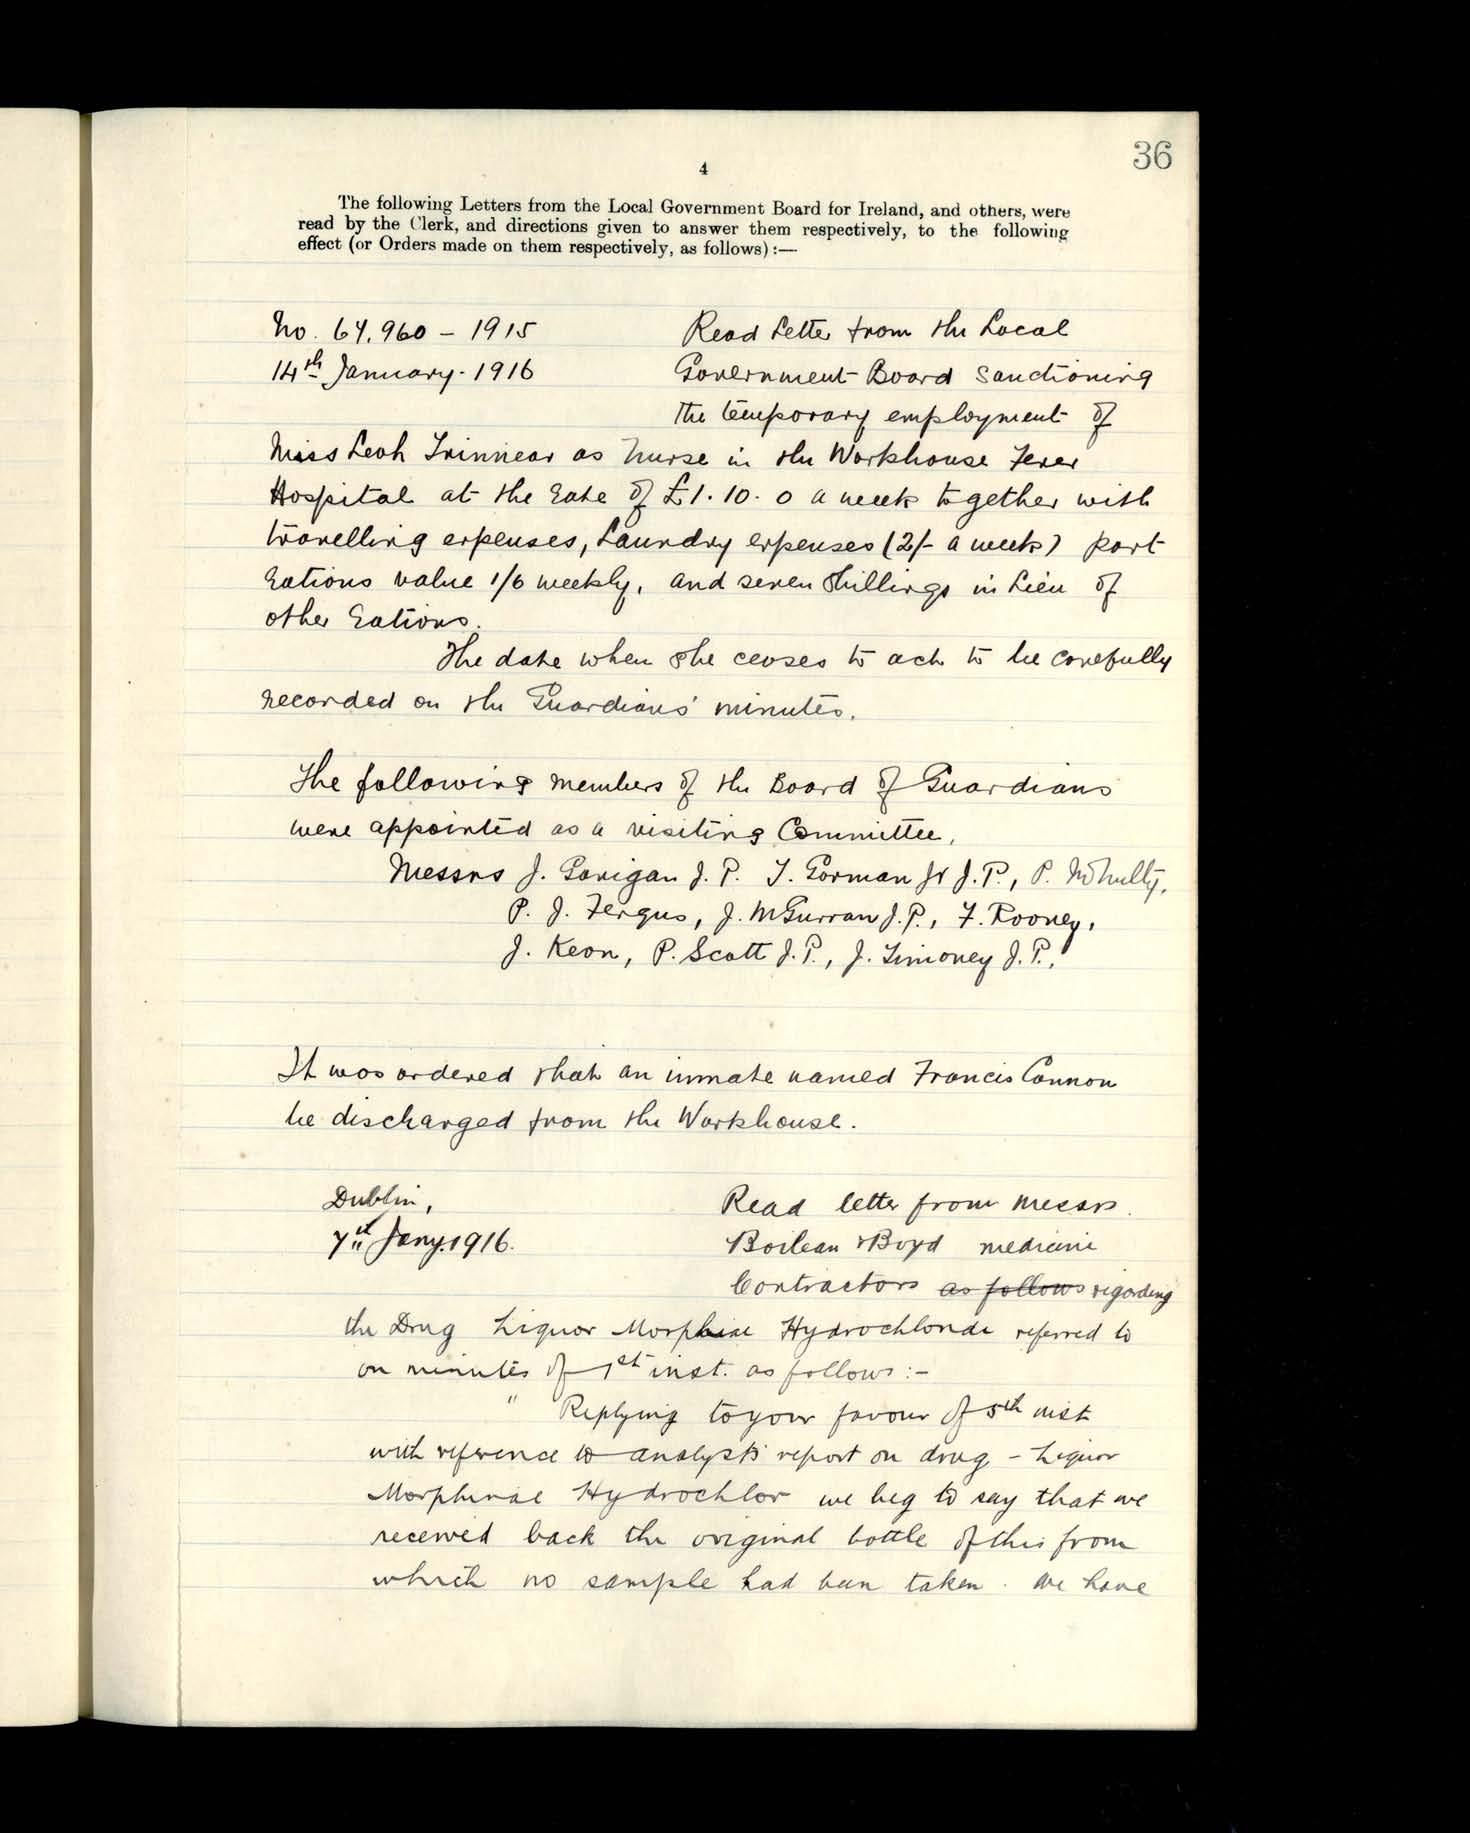 36
4
The following Letters from the Local Government Board for Ireland, and others, were
read by the Clerk, and directions given to answer them respectively, to the following
effect (or Orders made on them respectively, as follows):—
No. 64,960 – 1915 Read Letter from the Local
14th January. 1916 Government Board Sanctioning
the temporary employment of
Miss Leah Trinnear as Nurse in the Workhouse Fever
Hospital at the rate of £1. 10. 0 a week together with
travelling expenses, Laundry expenses (2/- a week) part
rations value 1/6 weekly, and seven shillings in lieu of
other rations.
The date when she ceases to act to be carefully
recorded on the Guardians' minutes.
The following members of the Board of Guardians
were appointed as a visiting Committee.
Messrs J. Gavigan J.P. T. Gorman Jr J.P., P. McNulty,
P. J. Fergus, J. McGurran J.P., F. Rooney,
J. Keon, P. Scott J.P., J. Timoney J.P.,
It was ordered that an inmate named Francis Connon
be discharged from the Workhouse.
Dublin, Read letter from Messrs.
7th Jany. 1916. Boileau & Boyd medicine
Contractors as follows regarding
the Drug Liquor Morphinae Hydrochloride referred to
on minutes of 1st inst. as follows:-
" Replying to your favour of 5th inst
with reference to analysts' report on drug – Liquor
Morphinae Hydrochlor we beg to say that we
received back the original bottle of this from
which no sample had been taken. We have